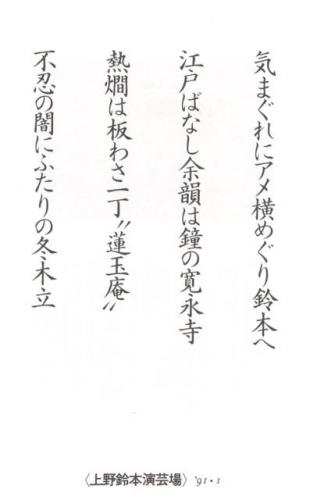 気まぐれにアメ横めぐり鈴本へ
江戸ばなし余韻は鐘の寛永寺
熱燗は板わさ一丁〝蓮玉庵〟
不忍の闇にふたりの冬木立
〈上野鈴本演芸場〉'91・1